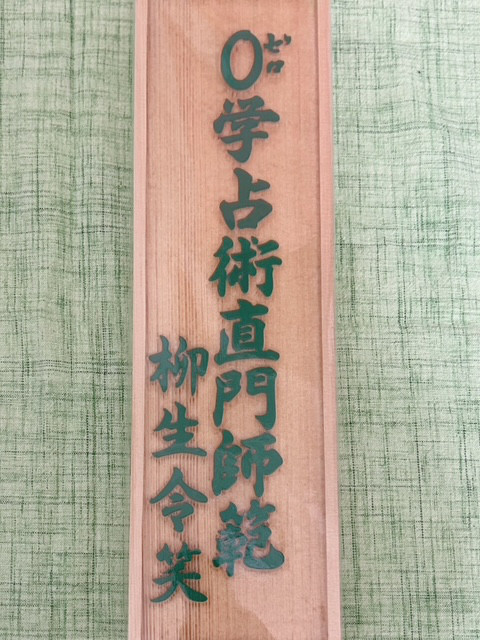 0学占術直門師範
ゼロ
柳生令笑